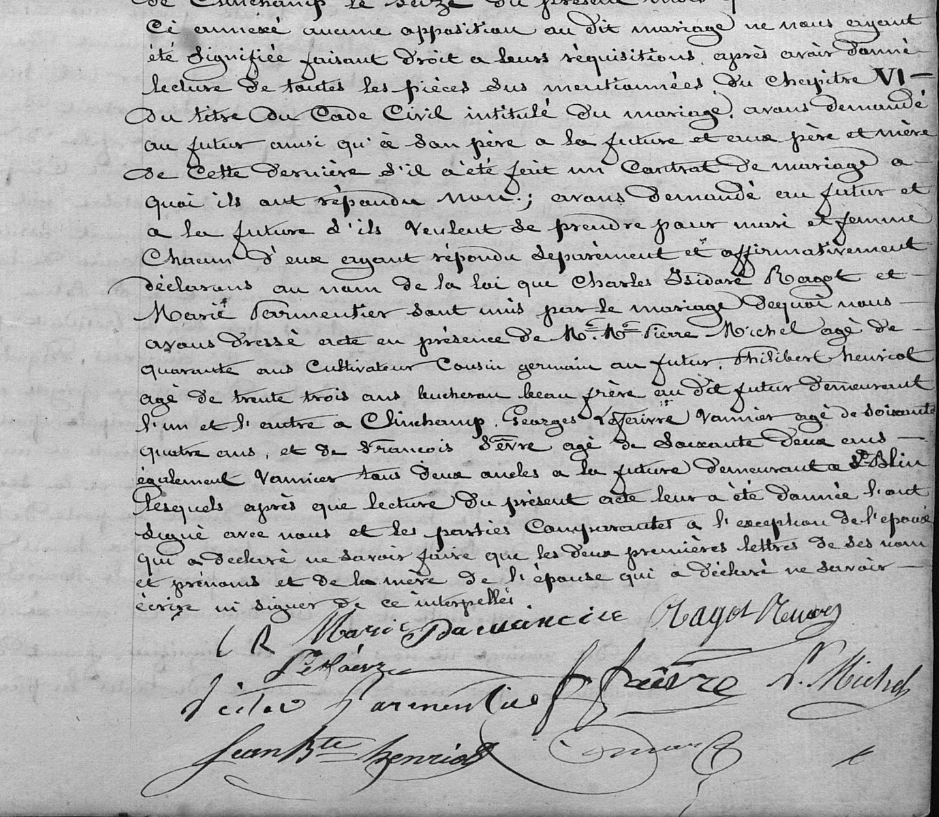 de Clinchamp le seize du présent mois
Ci annexé aucune opposition au dit mariage ne nous ayant
été signifiée faisant droit a leurs réquisitions, après avoir donné
lecture de toutes les pièces sus mentionnées du Chapitre VI
du titre du Code Civil intitulé du mariage, avons demandé
au futur ainsi qu'à son père a la future et aux père et mère
de cette dernière s'il a été fait un Contrat de mariage a
quoi ils ont répondu non ; avons demandé au futur et
a la future s'ils veulent se prendre pour mari et femme
Chacun d'eux ayant répondu séparément et affirmativement
déclarons au nom de la loi que Charles Isidore Ragot et
Marie Parmentier sont unis par le mariage dequoi nous
avons dressé acte en présence de M. M. Pierre Michel agé de
quarante ans Cultivateur Cousin germain au futur, Philibert henriot
agé de trente trois ans bucheron beau frère au dit futur demeurant
l'un et l'autre a Clinchamp, Georges Vannier agé de soixante
quatre ans, et de François Fèvre agé de soixante deux ans
également Vannier tous deux oncles a la future demeurant a St Blin
Lesquels après que lecture du présent acte leur a été donnée l'ont
signé avec nous et les parties Comparantes a l'exception de l'époux
qui a declaré ne savoir faire que les deux premières lettres de ses nom
et prénoms et de la mère de l'épouse qui a déclaré ne savoir
écrire ni signer de ce interpellés
C R Marie Ragot
Parmentier f faivre P. Michel
Jean Bte henriot